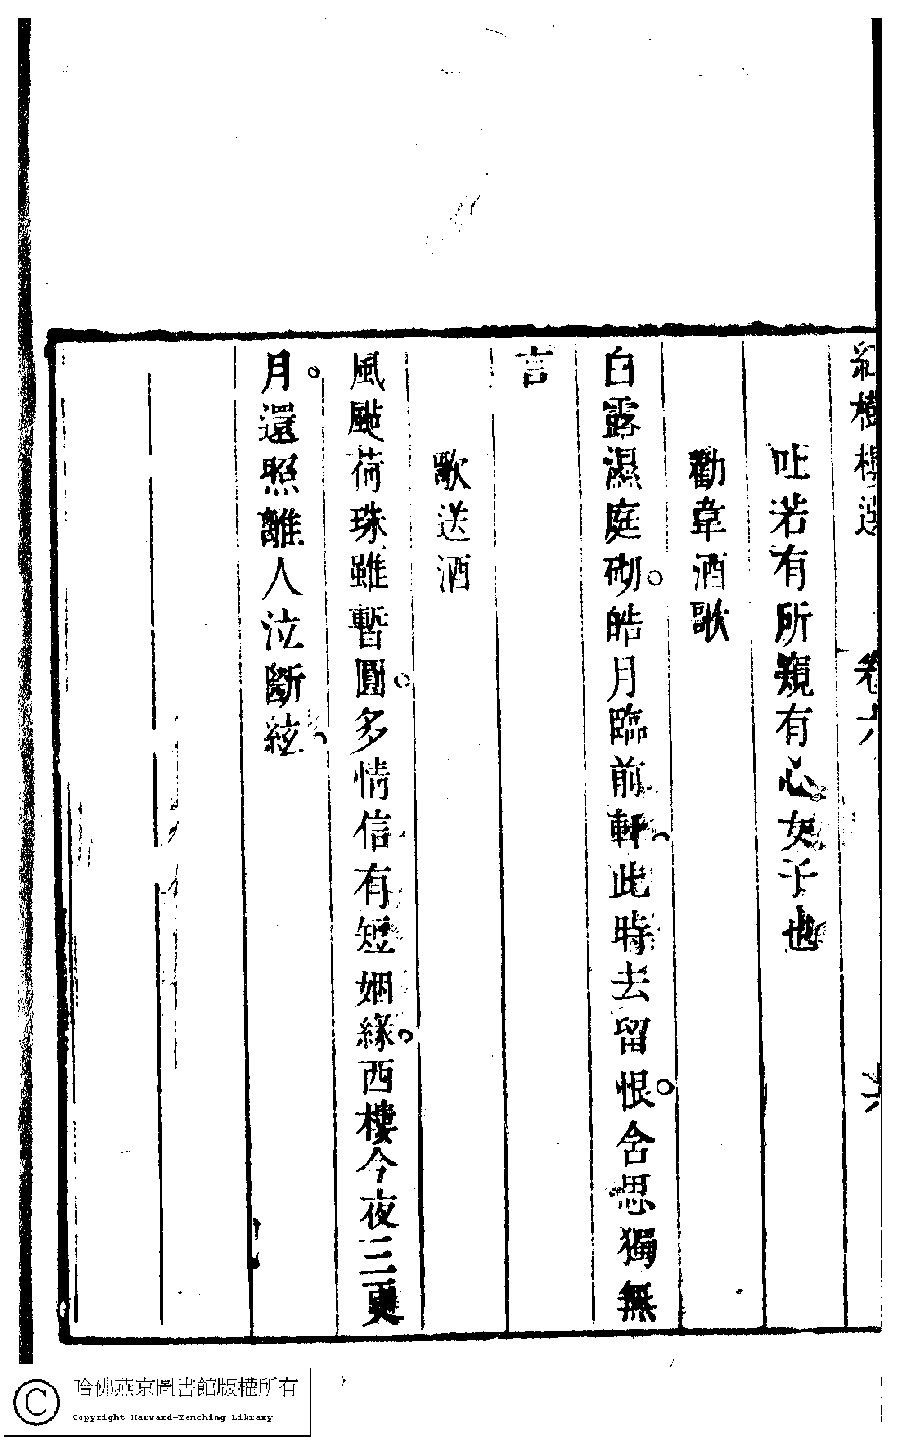 紅樹樓選　卷六　六
吐若有所窺有心女子也
勸韋酒歌
白露濕庭砌。皓月臨前軒。此時去留恨。含思獨無
言
歌送酒
風颭荷珠雖暫圓。多情信有短姻緣。西樓今夜三更
月。還照離人泣斷絃。
哈佛燕京圖書館版權所有
Copyright Harvard-Yenching Library